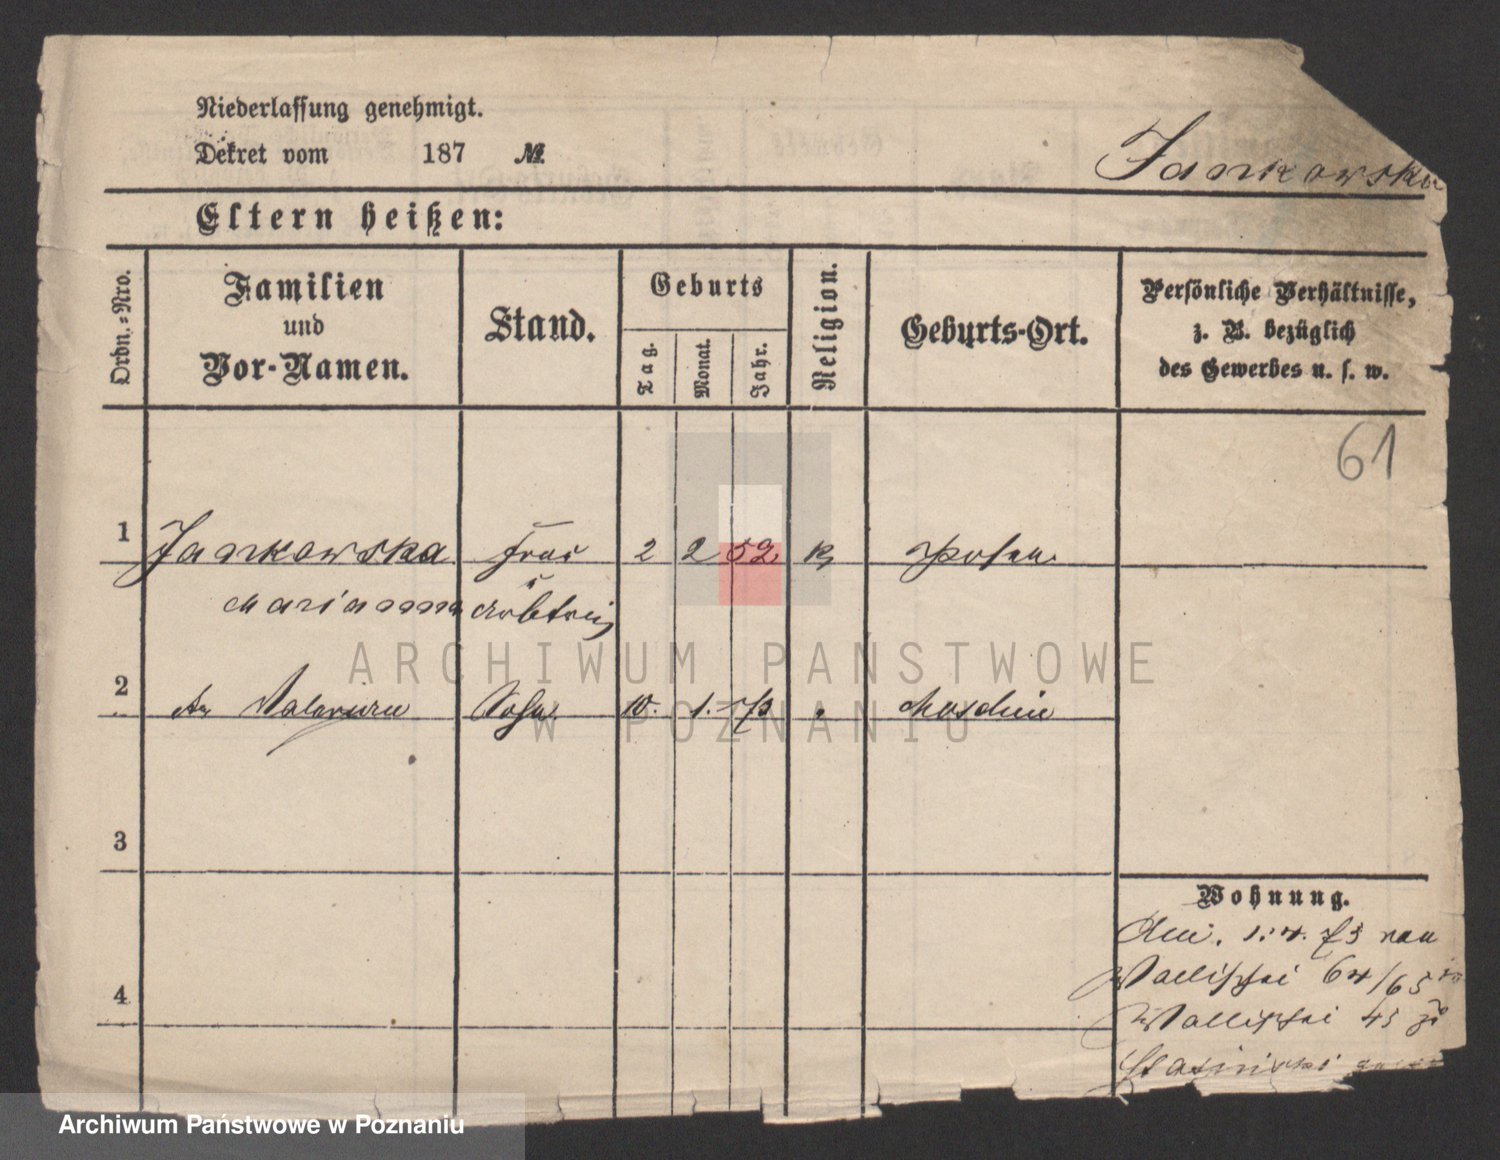 Niederlassung genehmigt.
Dekret vom 187 №
Jankowska
Eltern heißen:
Ordn.-Nro.
Familien und Vor-Namen.
Stand.
Geburts
Tag.
Monat.
Jahr.
Religion.
Geburts-Ort.
Persönliche Verhältnisse,
z. B. bezüglich
des Gewerbes u. s. w.
61
1 Jankowska Frau 2 2 52 k Posen
Marianna
2 Sohn 10. 1. 73 Moschin
3
4
Wohnung.
73 von
Wallischei 64/65 in
Wallischei 45 zu
ARCHIWUM PAŃSTWOWE
W POZNANIU
Archiwum Państwowe w Poznaniu